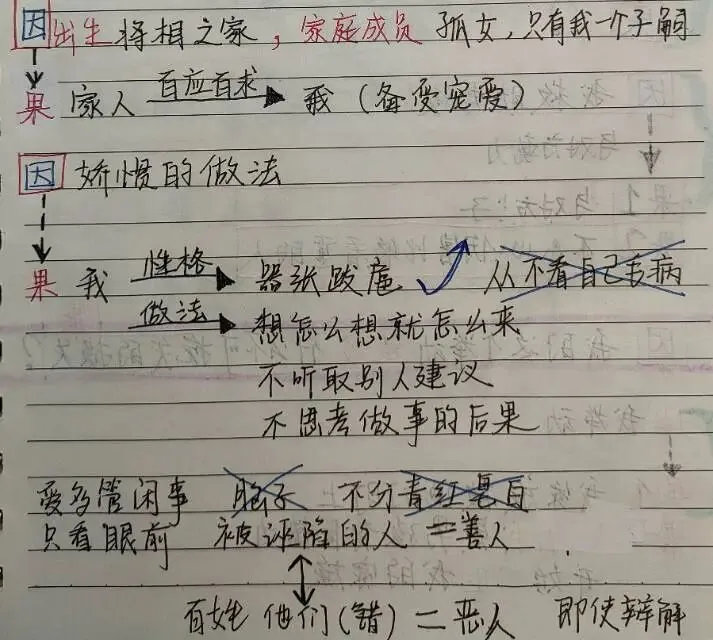 因 出生将相之家，家庭成员 孤女，只有我一个子嗣
果 家人 百应百求 我（备受宠爱）
因 娇惯的做法
果 我 性格 嚣张跋扈 从不看自己毛病
做法 想怎么想就怎么来
不听取别人建议
不思考做事的后果
爱多管闲事 脑子 不分青红皂白
只看眼前 被诬陷的人 = 善人
百姓 他们(错) = 恶人 即使辩解